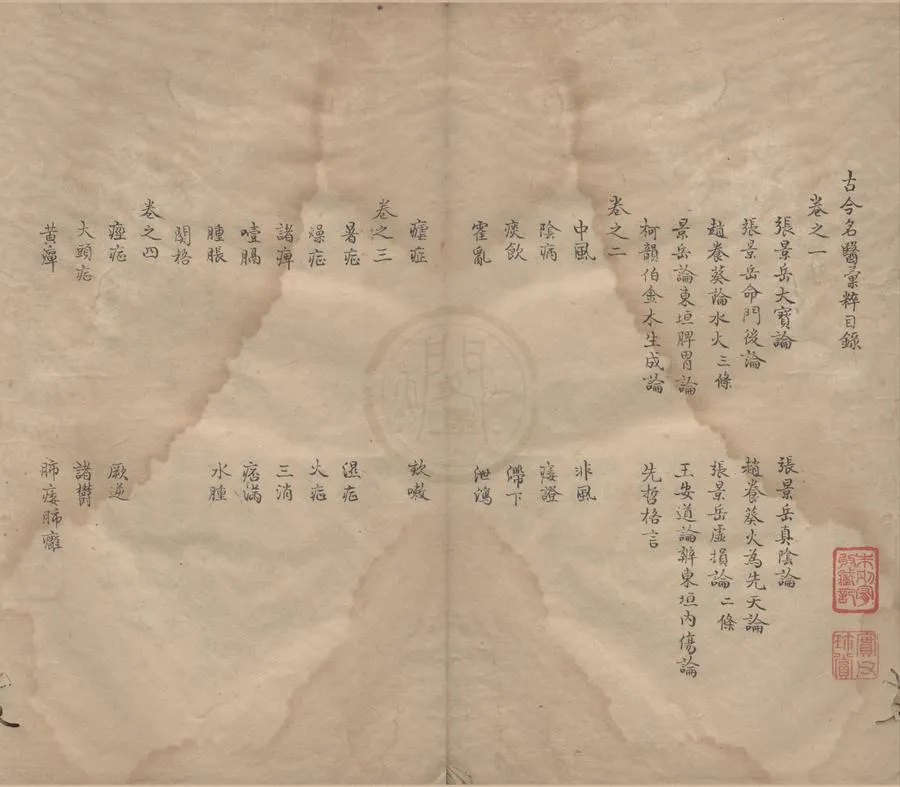 古今名醫彙粹目錄
卷之一
張景岳大寶論 張景岳真陰論
張景岳命門後論 趙養葵火為先天論
趙養葵論水火三條 張景岳虛損論二條
景岳論東垣脾胃論 王安道論辨東垣內傷論
柯韻伯金木生成論 先哲格言
卷之二
中風 非風
陰病 痿證
痰飲 滯下
霍亂 泄瀉
瘧症 欬嗽
卷之三
暑症 濕症
燥症 火症
諸痺 三消
噎膈 痞滿
腫脹 水腫
関格
卷之四
痙症 厥逆
大頭症 諸鬱
黃癉 肺痿肺癰